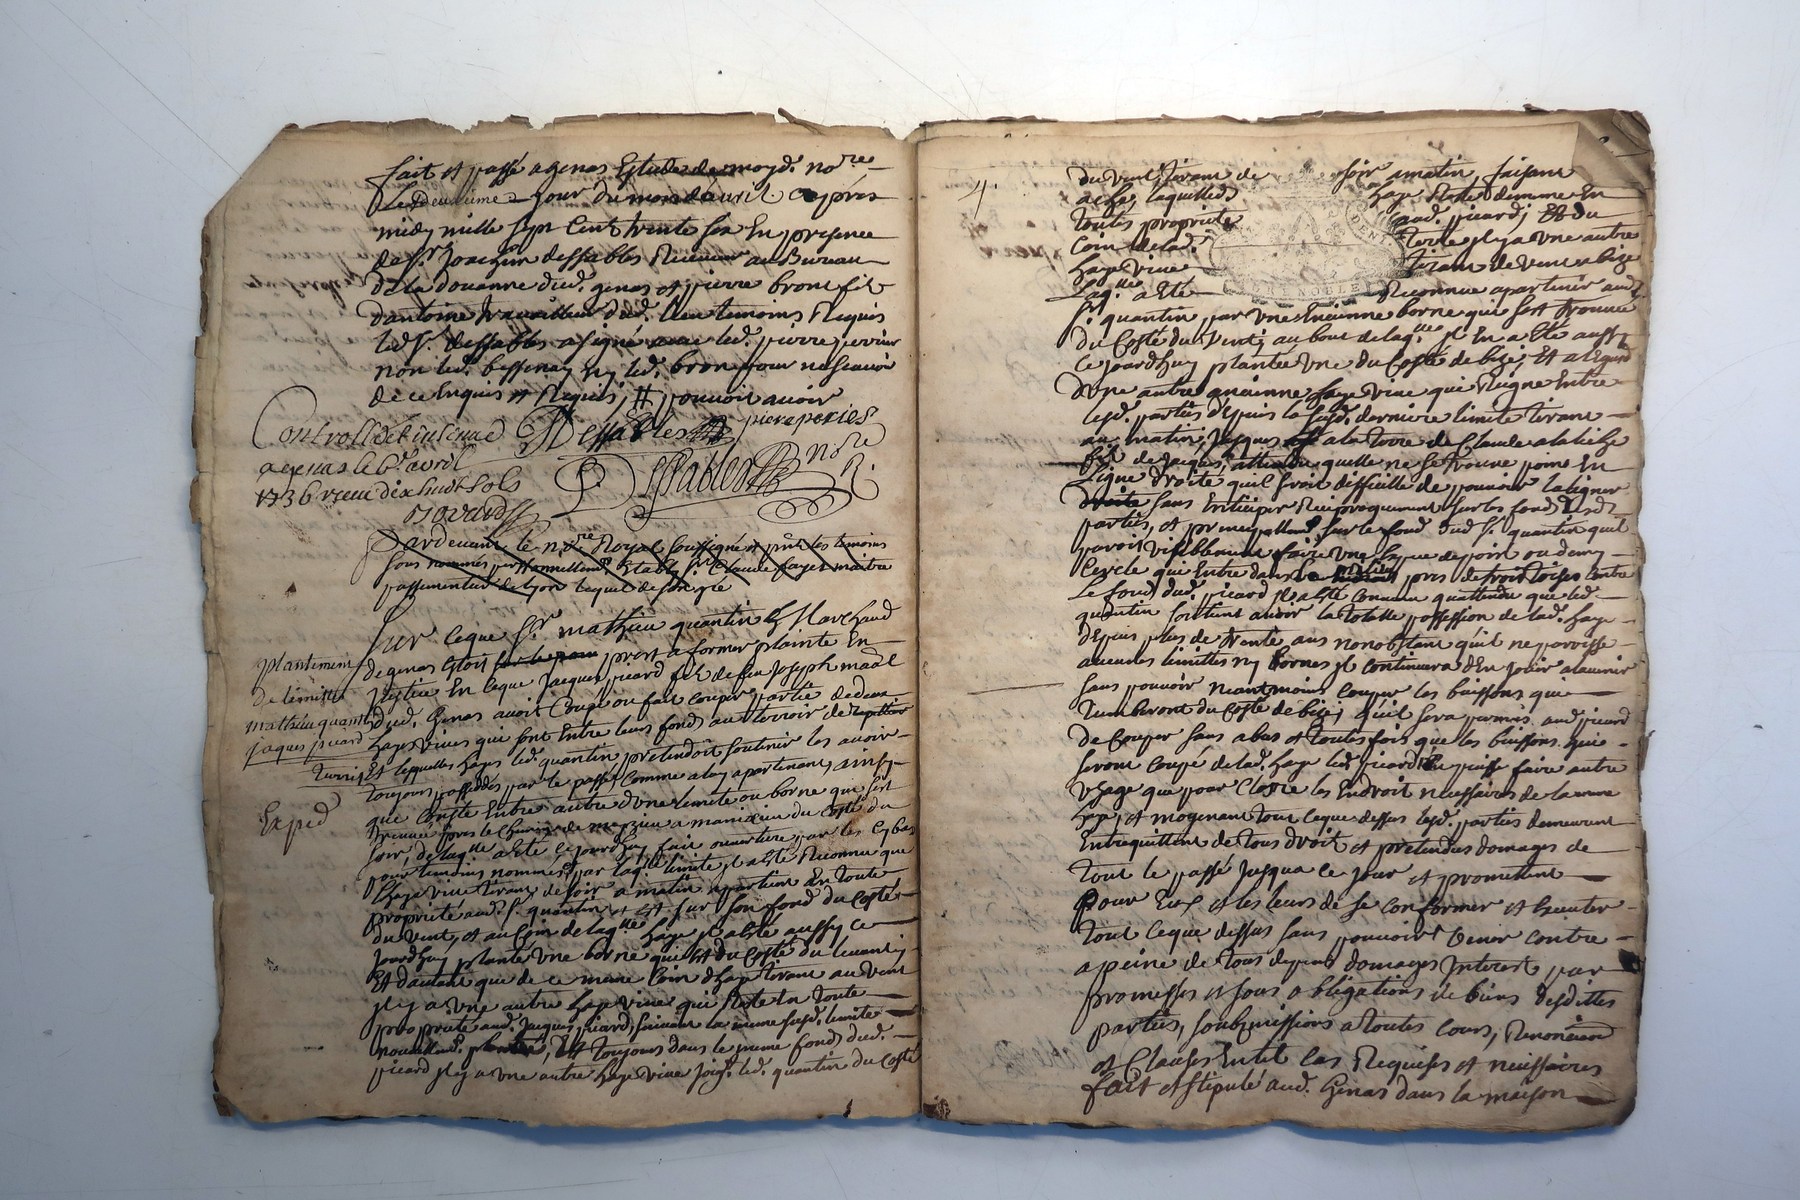 fait et passé a genas Estude de moy d. no.re
Le deuxieme Jour du mois davril apres
midy mille sept Cent trente six En presence
de S.r Joachin dessables Receveur au Bureau
de la douanne dud. genas et pierre bron fils
dantoine travailleur dud. lieu temoins Requis
led. S.r dessables a signé avec led. pierre perier
non led. bessenay ny led. bron pour ne scavoir
de ce Enquis et Requis, pouvoir avoir
Dessables
piere peries
Controllé et insinué
a genas le 6.e avril
1736 receu dix huit sols
Dessables no.re R.
Pardevant le no.re Royal soussigné et pnt les temoins
sous nommes personnellement Estably Sr. Claude fayet maitre
passementier de Lyon lequel de son gré
Sur Ceque S.r mathieu quantin Marchand
de genas Estoit sur le point prest a former plainte En
plantement
de limitte
mathieu quantin
Jaques picard
Justice En Ceque Jacques picard fils de feu Joseph
dud. Genas avoit Coupé ou fait couper partie de deux
hayes vives qui sont Entre leurs fonds au terroir de
Et lesquelles hayes led. quantin pretendoit soutenir les avoir
toujours possedés par le passé Comme a luy apartenant, ainsy
Exped
que Conste Entre autre dune limitte ou borne que sest
trouvée pres le Chemin de meyzieu a manissieu du Costé du
soir, de laq.lle a Esté cejourdhuy fait ouverture par les
pour temoins nommés, par laq.lle limitte, Il a Esté Reconnu que
haye vive tirant de soir a matin apartient En toute
proprieté aud. S. quantin et Est sur son fond du Costé
du vent, et au Coin de laq.lle haye Il a Esté aussy ce
jourdhuy planté Une borne qui Est du Costé du levant
Et dautant que de ce meme Coin dhaye tirant au vent
il y a Une autre haye vive qui Reste En toute
proprieté aud. Jacques picard, suivant la meme susd. limitte
nouvellem.t plantée, Et toujours dans le meme fonds dud.
picard il y a Une autre haye vive Joig.t led. quantin du Costé
4.
du vent tirant de soir a matin, faisant
haye Reste demême En
toutes proprieté aud. picard, Et du
Coin delad. Il y a Une autre
haye vive tirant de vent a bize
Laq.lle a Esté Reconnue apartenir aud.
S. quantin par Une Encienne borne qui sest trouvée
du Costé du vent, au bout de laq.lle Il En a Esté aussy
Ce jourdhuy plantée Une du Costé de bize, Et a legard
dune autre Encienne haye vive qui Regne Entre
lesd. partiés depuis la susd. derniere limitte tirant
au matin Jusques a la terre de Claude
fils de Jacques, attendu quelle ne se trouve point En
Ligne droite quil seroit difficille de pouvoir laligner
droite sans Enticiper Reciproquement sur les fonds desd.
partiés, et principallem.t sur le fond dud. S. quantin quil
paroit visiblement faire Une Espece de point ou demy
Cercle qui Entre dans le milieu pres de trois toises Contre
Le fond dud. picard Il a Esté Convenu quattendu que led.
quantin soutient avoir la totalle possession de lad. haye
depuis plus de trente ans nonobstant quil ne paroisse
aucunes limittes ny bornes Il continuera den Jouir a lavenir
sans pouvoir neantmoins Couper les buissons qui
tumberont du Costé de bize, quil sera permis aud. picard
de Couper sans abus et toutes fois que les buissons qui
seront Coupé de lad. haye led. picard puisse faire autre
Usage que pour Clorre les Endroit necessaires de la meme
haye, et moyenant tout ceque dessus lesd. partiés demeurent
Entrequittent de tous droit et pretendus domages de
tout le passé Jusqua ce jour et promettent
pour Eux et les leurs de se conformer et Executer
tout ceque dessus sans pouvoir venir contre
a peine de tous depens domages Interest par
promesses et sous obligations de biens desdittes
partiés, soubzmissions a toutes Cours, Renonciaon
et Clauses Entel Cas Requises et necessaires
fait et stipulé aud. Genas dans la maison
GRENOBLE